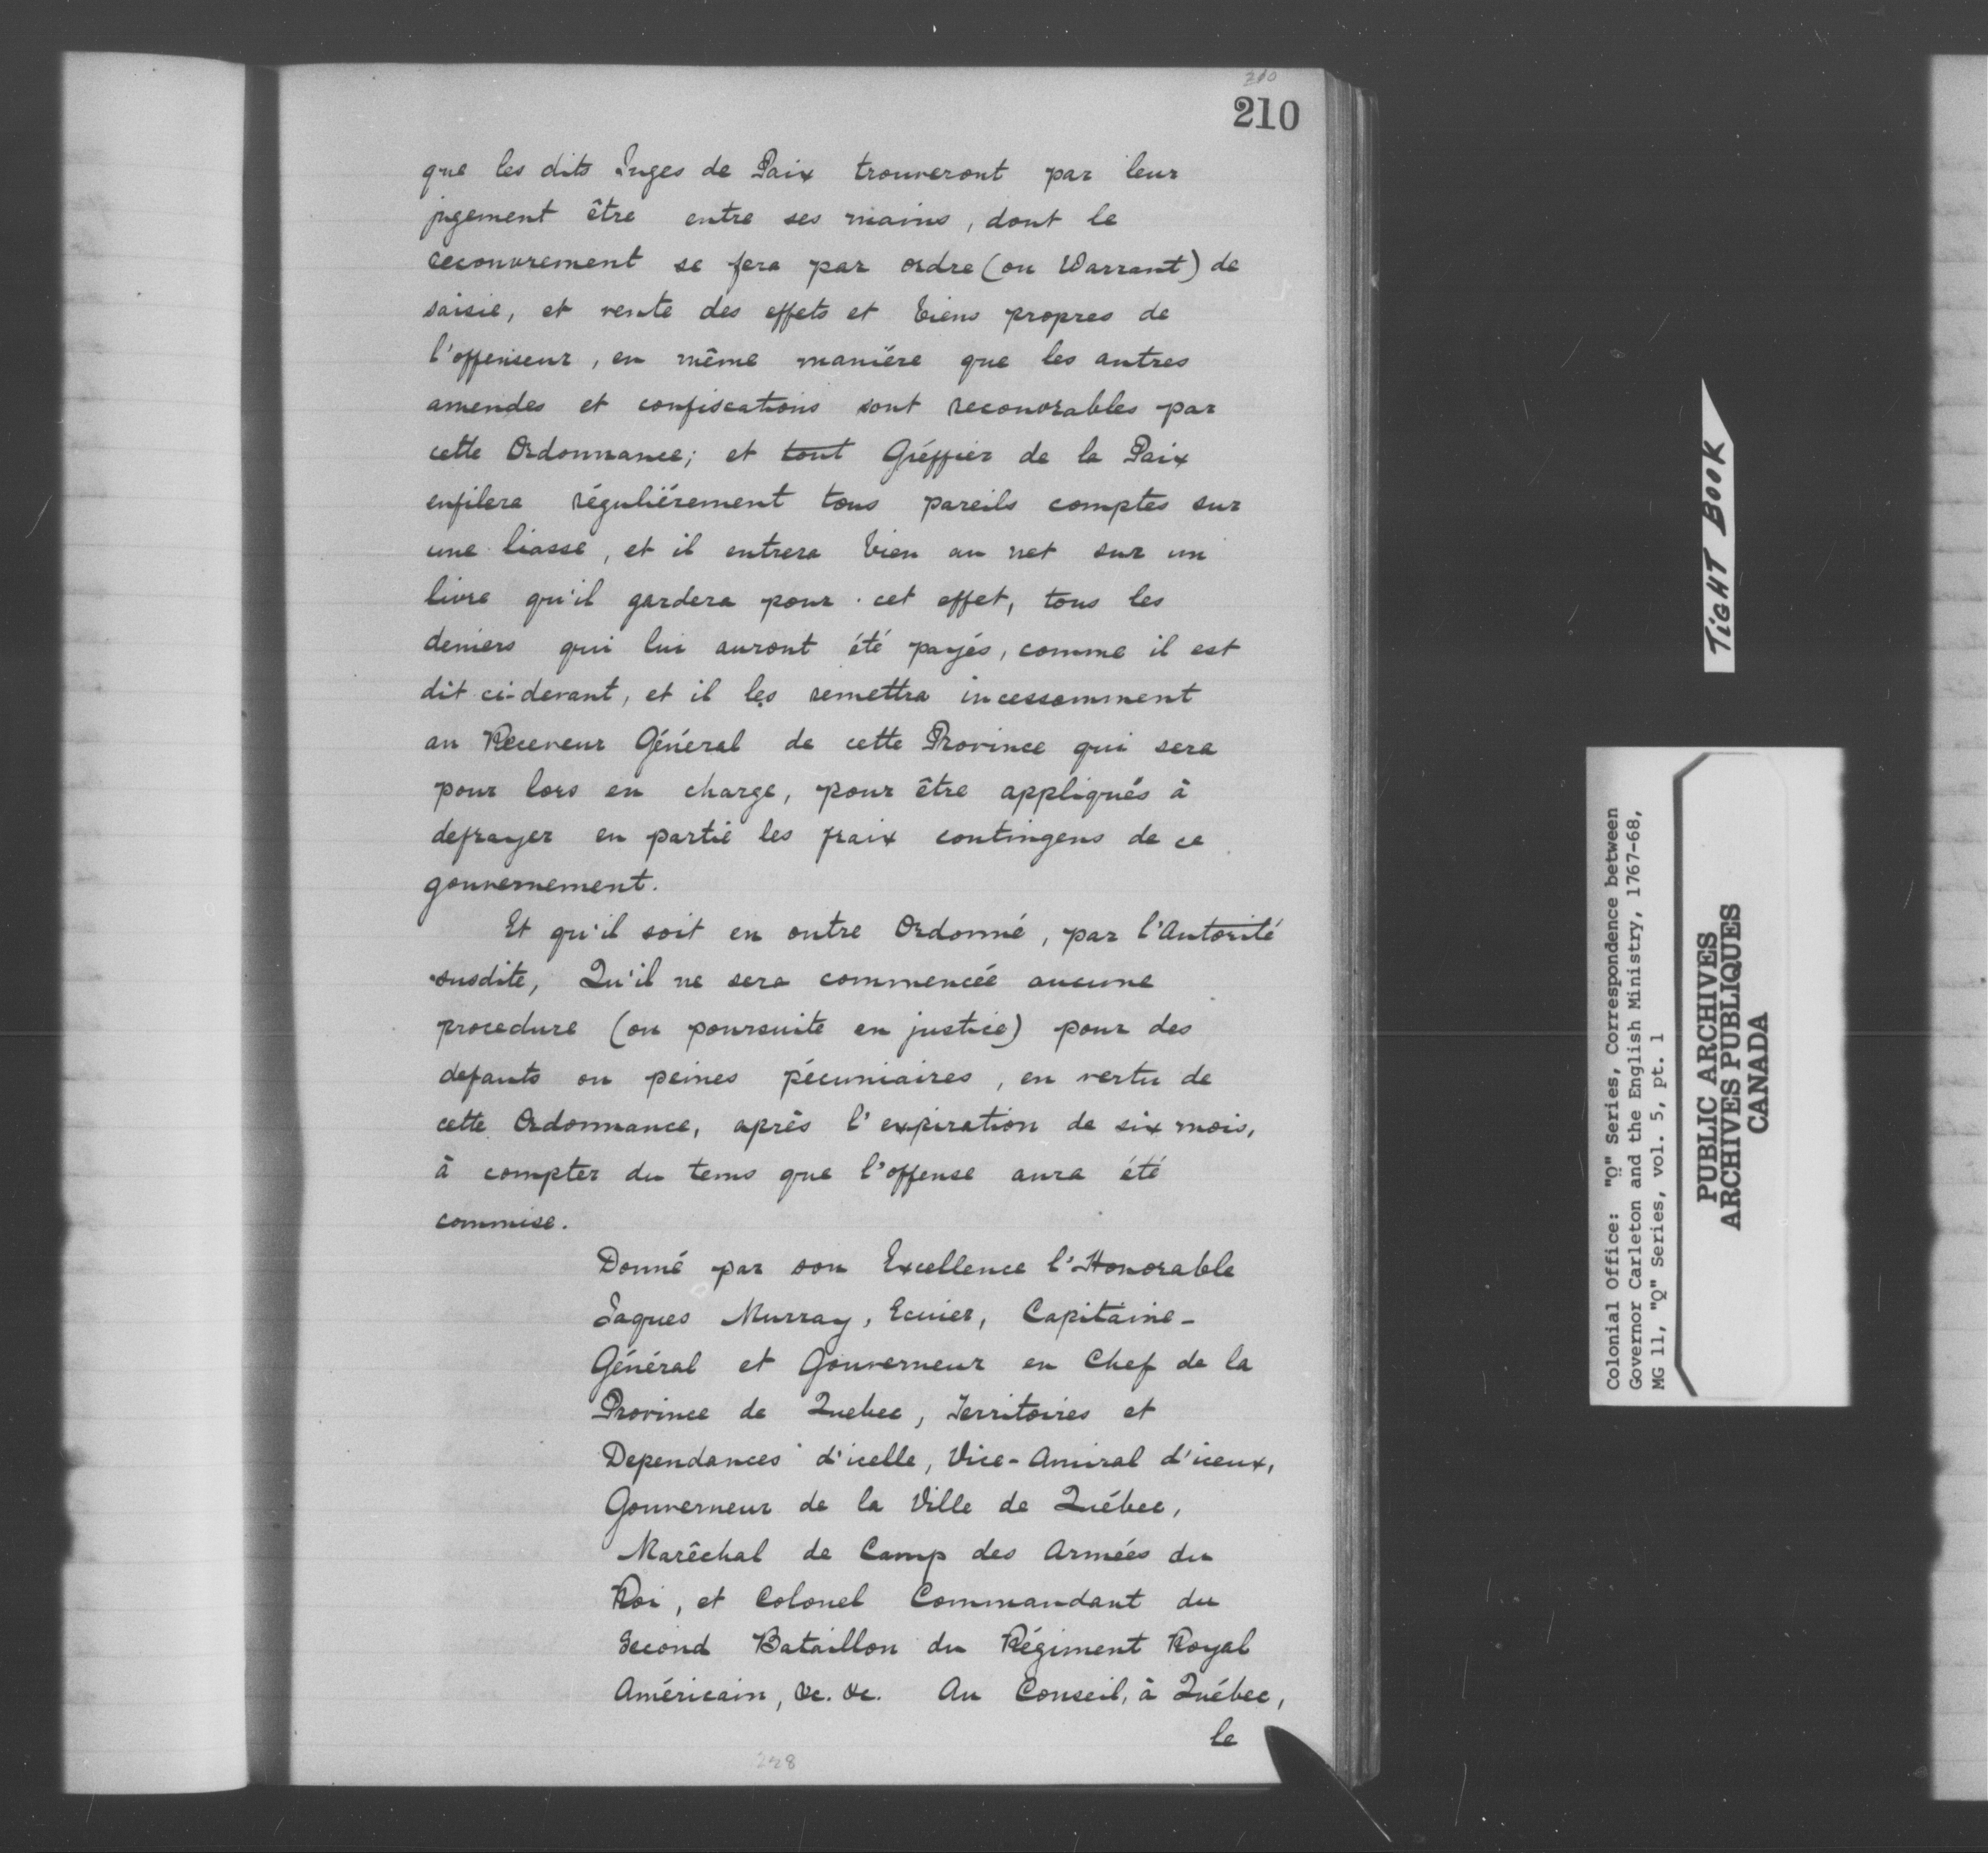 210
210
que les dits Juges de Paix trouveront par leur
jugement être entre ses mains, dont le
recouvrement se fera par ordre (ou Warrant) de
saisie, et vente des effets et biens propres de
l'offenseur, en même maniére que les autres
amendes et confiscations sont recouvrables par
cette Ordonnance; et tout Gréffier de la Paix
enfilera réguliérement tous pareils comptes sur
une liasse, et il entrera bien au net sur un
livre qu'il gardera pour cet effet, tous les
deniers qui lui auront été payés, comme il est
dit ci-devant, et il les remettra incessamment
au Receveur Général de cette Province qui sera
pour lors en charge, pour être appliqués à
defrayer en partie les fraix contingens de ce
gouvernement.
Et qu'il soit en outre Ordonné, par l'Autorité
susdite, Qu'il ne sera commencée aucune
procedure (ou poursuite en justice) pour des
defauts ou peines pécuniaires, en vertu de
cette Ordonnance, après l'expiration de six mois,
à compter du tems que l'offense aura été
commise.
Donné par son Excellence l'Honorable
Jaques Murray, Ecuier, Capitaine-
Général et Gouverneur en Chef de la
Province de Quebec, Territoires et
Dependances d'icelle, Vice-Amiral d'iceux,
Gouverneur de la Ville de Québec,
Marêchal de Camp des Armées du
Roi, et Colonel Commandant du
Second Bataillon du Régiment Royal
Américain, &c. &c. Au Conseil, à Québec,
le
228
TIGHT BOOK
Colonial Office: "Q" Series, Correspondence between
Governor Carleton and the English Ministry, 1767-68,
MG 11, "Q" Series, vol. 5, pt. 1
PUBLIC ARCHIVES
ARCHIVES PUBLIQUES
CANADA